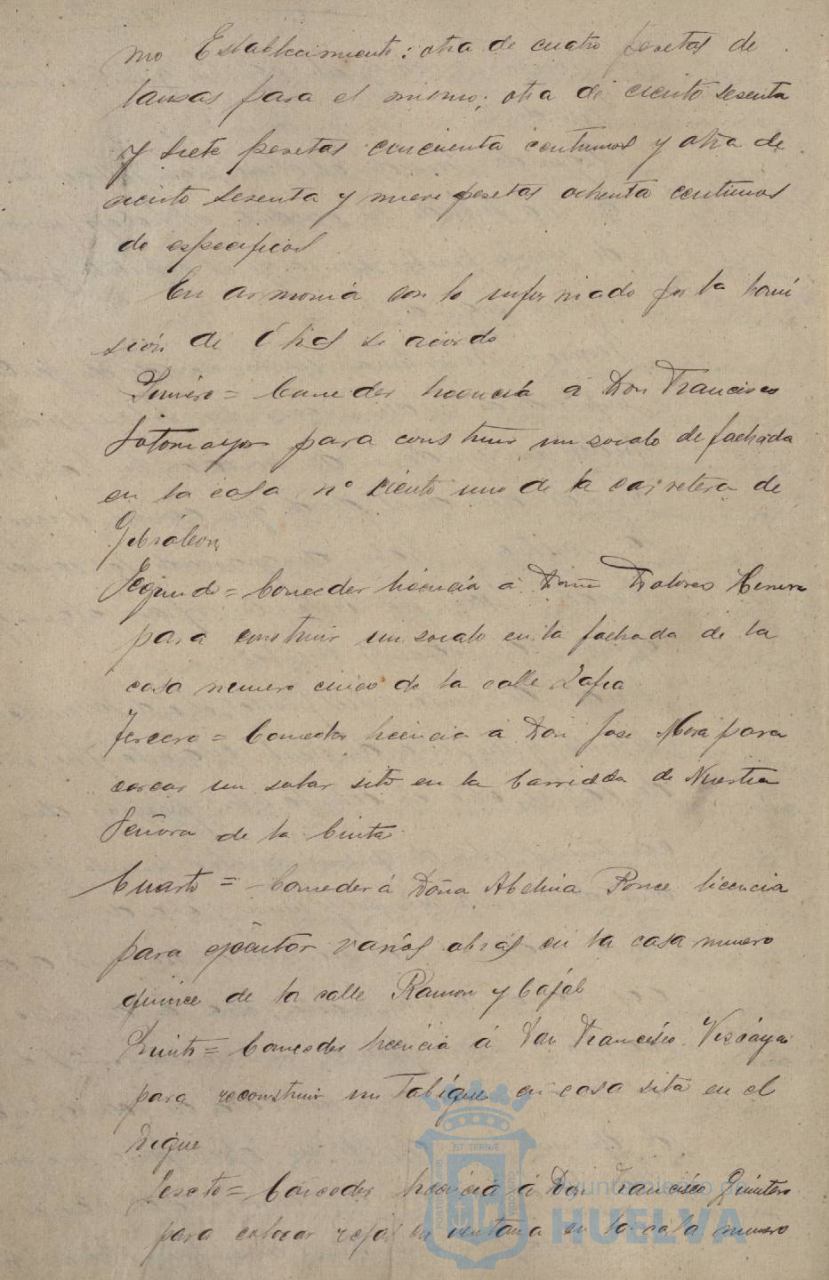 mo Establecimiento; otra de cuatro pesetas de
para el mismo; otra de ciento sesenta
y siete pesetas cincuenta centimos y otra de
ciento sesenta y nueve pesetas ochenta centimos
de especificos
En armonia con lo informado por la Comi
sión de Obras se acordo
Primero = Conceder licencia á Don Francisco
Sotomayor para construir un zocalo de fachada
en la casa nº ciento uno de la carretera de
Gibraleon
Segundo = Conceder licencia á Doña Dolores
para construir un zocalo en la fachada de la
casa numero cinco de la calle Zafra
Tercero = Conceder licencia á Don Jose Mora para
cercar un solar sito en la barriada de Nuestra
Señora de la Cinta
Cuarto = Conceder á Doña Abelina Ponce licencia
para ejecutar varias obras en la casa numero
quince de la calle Ramon y Cajal
Quinto = Conceder licencia á Don Francisco Vizcaya
para reconstruir un Tabique en casa sita en el
Dique
Sexto = Conceder licencia á Don Francisco Quintero
para colocar rejas en ventana en la casa numero
Ayuntamiento de
HUELVA